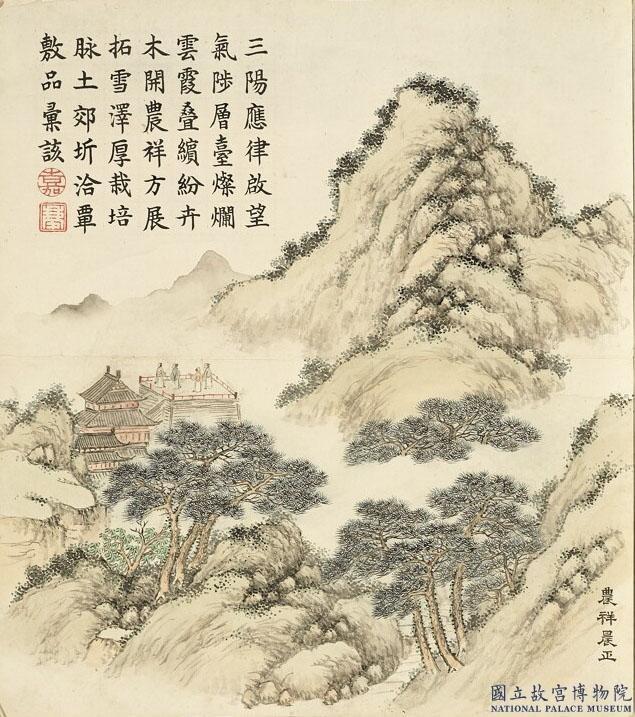 三陽應律啟望
氣陟層臺燦爛
雲霞叠繽紛卉
木開農祥方展
拓雪澤厚栽培
脉土郊圻洽覃
敷品彙該
嘉
農祥晨正
國立故宮博物院
NATIONAL PALACE MUSEUM